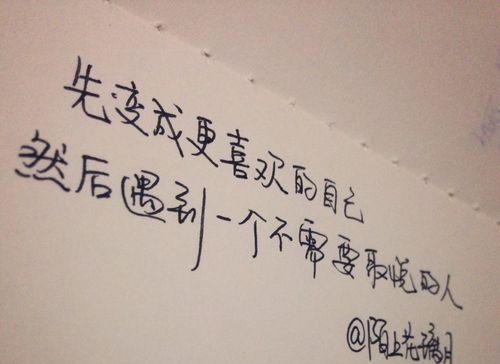 先变成更喜欢的自己
然后遇到一个不需要取悦的人
@陌上花满月